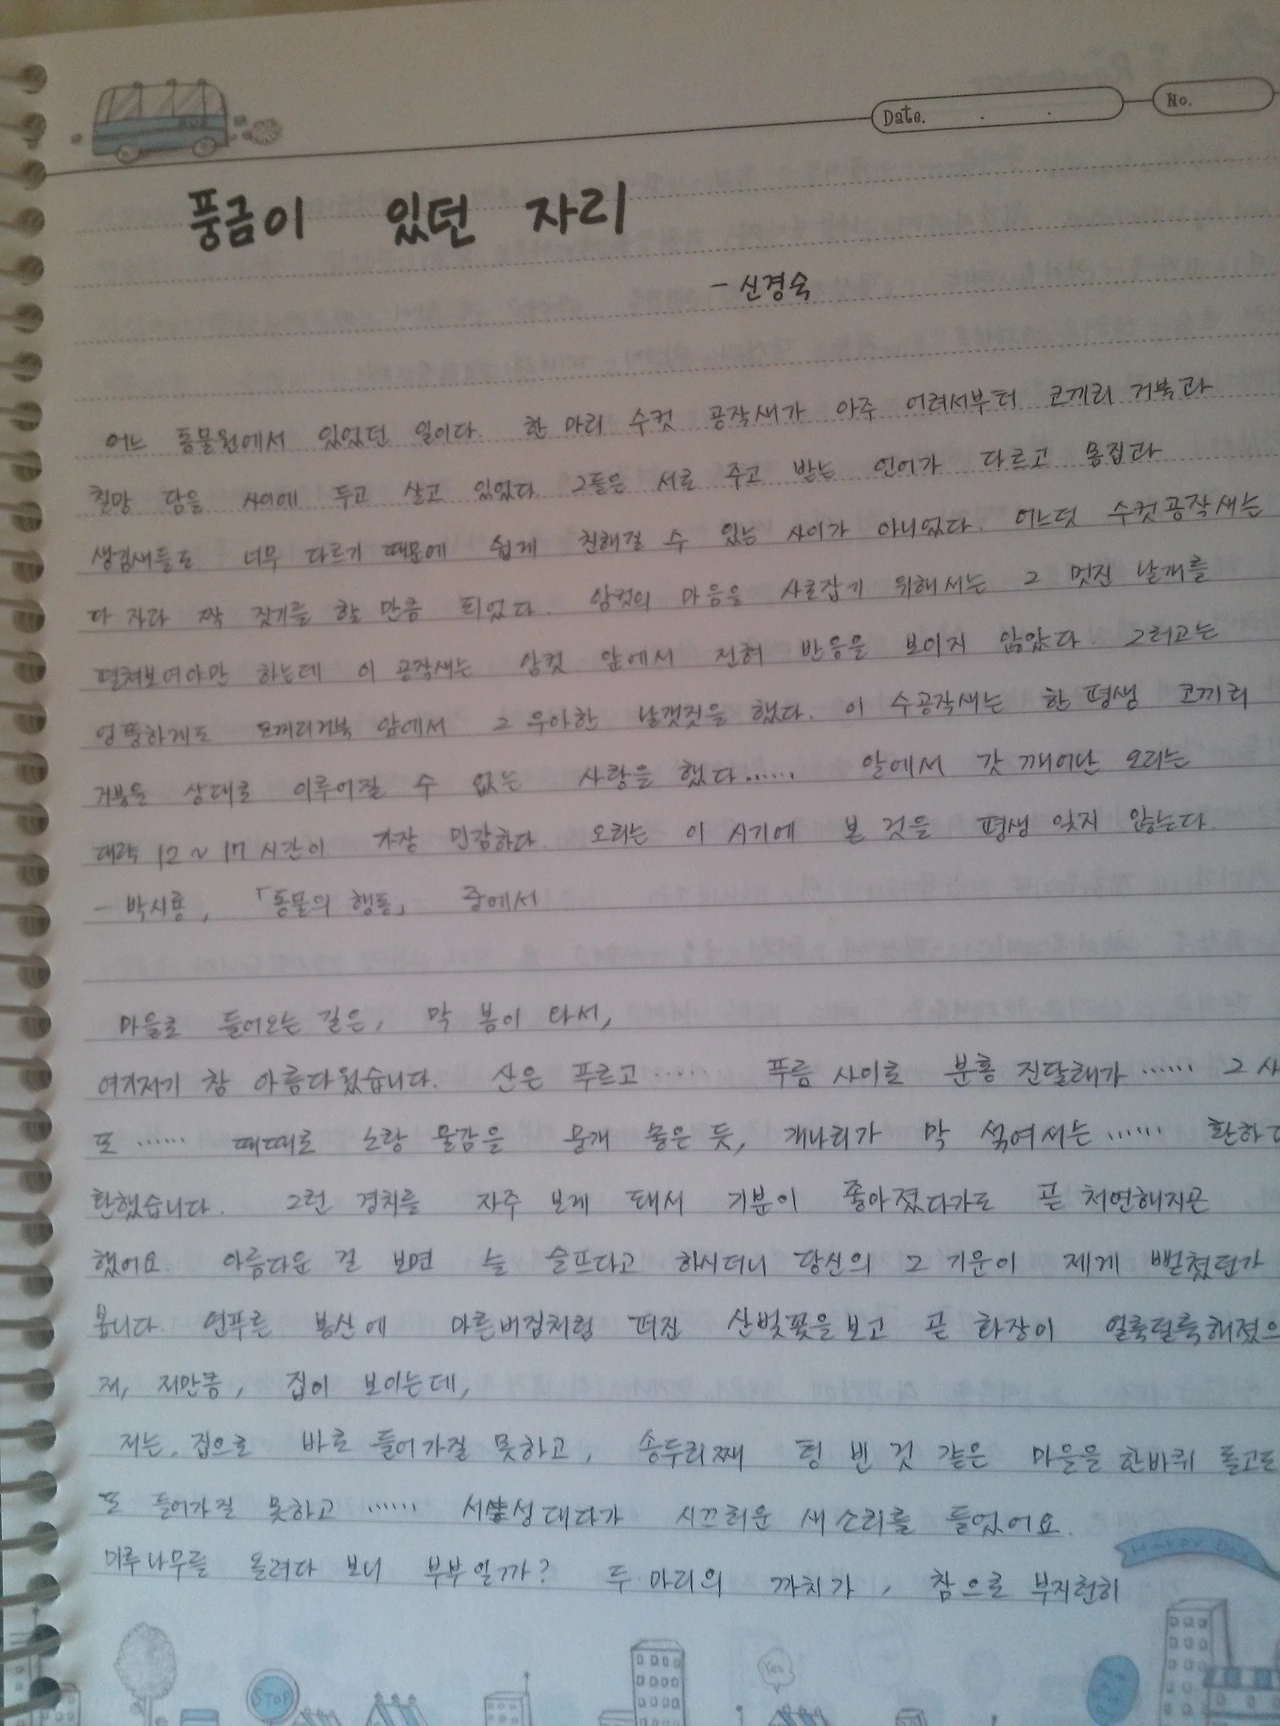 Date.
No.
풍금이 있던 자리
- 신경숙
어느 동물원에서 있었던 일이다. 한 마리 수컷 공작새가 아주 어려서부터 코끼리 거북과
철망 담을 사이에 두고 살고 있었다. 그들은 서로 주고 받는 언어가 다르고 몸집과
생김새들도 너무 다르기 때문에 쉽게 친해질 수 있는 사이가 아니었다. 어느덧 수컷공작새는
다 자라 짝 짓기를 할 만큼 되었다. 암컷의 마음을 사로잡기 위해서는 그 멋진 날개를
펼쳐보여야만 하는데 이 공작새는 암컷 앞에서 전혀 반응을 보이지 않았다. 그러고는
엉뚱하게도 코끼리거북 앞에서 그 우아한 날갯짓을 했다. 이 수공작새는 한 평생 코끼리
거북을 상대로 이루어질 수 없는 사랑을 했다...... 알에서 갓 깨어난 오리는
대략 12 ~ 17 시간이 가장 민감하다. 오리는 이 시기에 본 것을 평생 잊지 않는다.
- 박시룡, 「동물의 행동」 중에서
마을로 들어오는 길은, 막 봄이 와서,
여기저기 참 아름다웠습니다. 산은 푸르고...... 푸름 사이로 분홍 진달래가...... 그 사
또...... 때때로 노랑 물감을 뭉개 놓은 듯, 개나리가 막 섞여서는...... 환하디
환했습니다. 그런 경치를 자주 보게 돼서 기분이 좋아졌다가도 곧 처연해지곤
했어요. 아름다운 걸 보면 늘 슬프다고 하시더니 당신의 그 기운이 제게 뻗쳤던가
봅니다. 연푸른 봄산에 마른버짐처럼 퍼진 산벚꽃을 보고 곧 화장이 얼룩덜룩해졌으
저, 저만큼, 집이 보이는데,
저는, 집으로 바로 들어가질 못하고, 송두리째 텅 빈 것 같은 마을을 한바퀴 돌고도
또 들어가질 못하고...... 서성대다가 시끄러운 새소리를 들었어요.
미루나무를 올려다 보니 부부일까? 두 마리의 까치가, 참으로 부지런히
HAPPY DAY
STOP
You